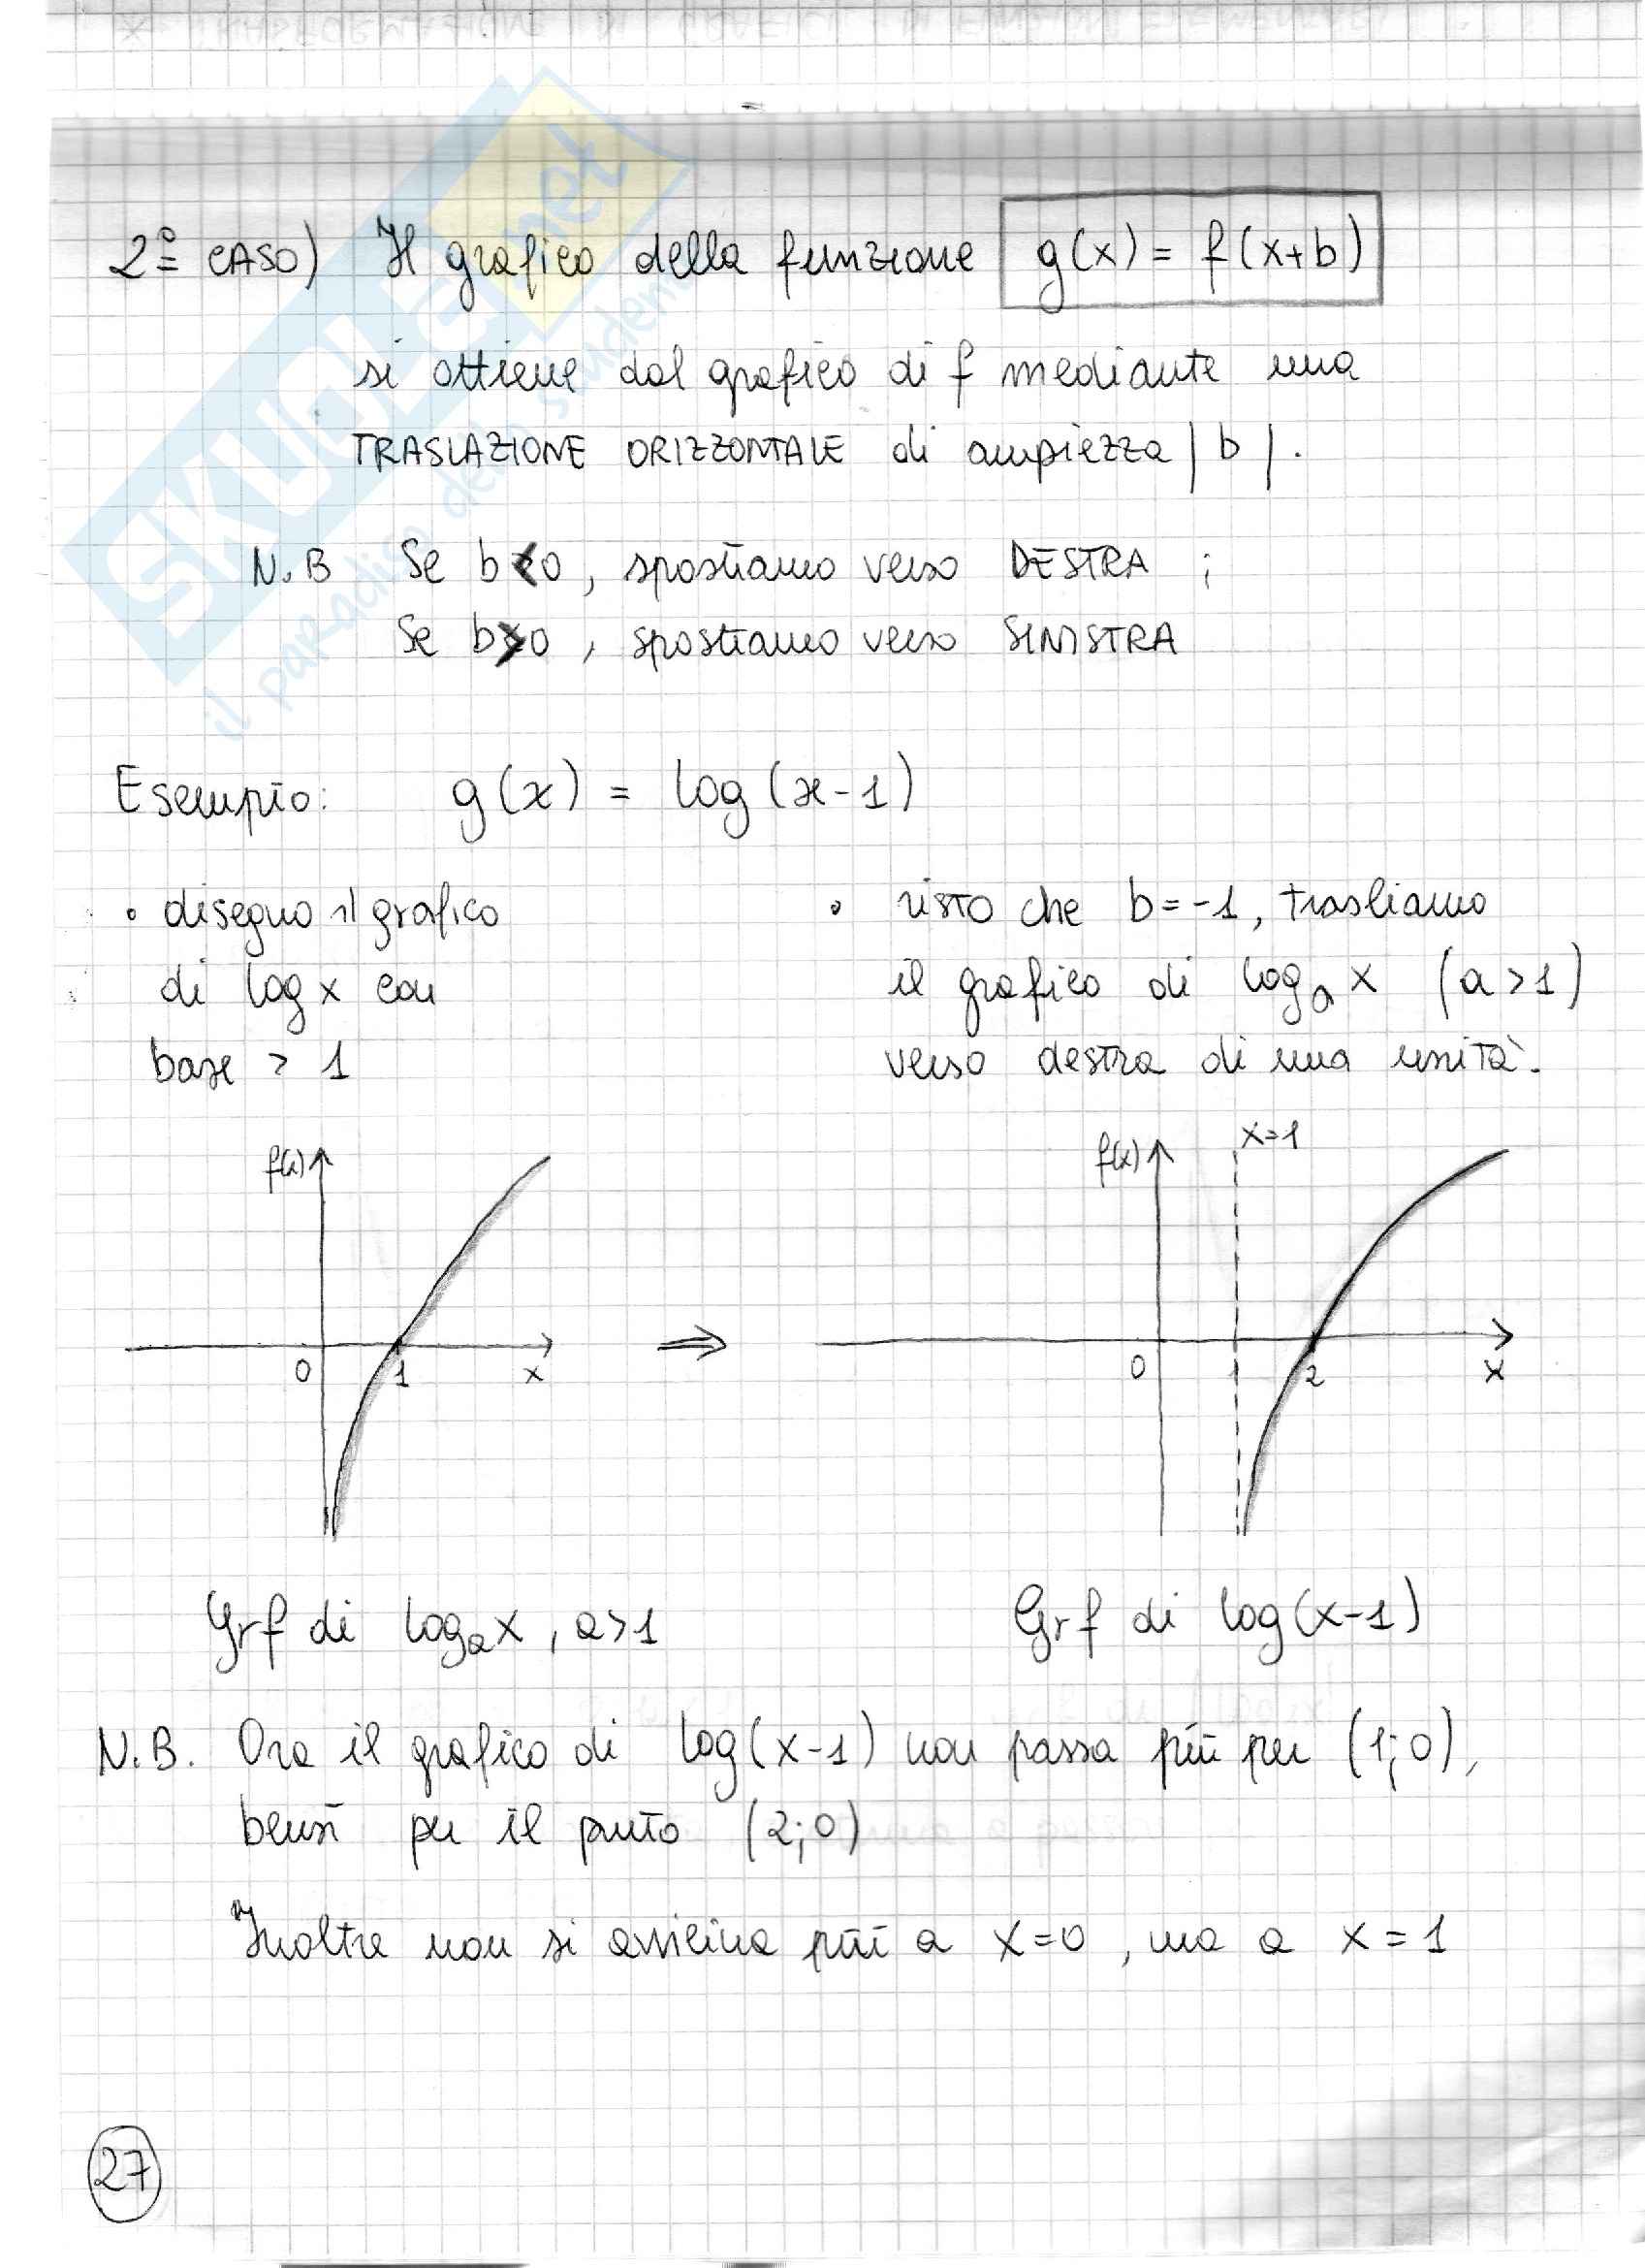 2º CASO) Il grafico della funzione g(x) = f(x+b)
si ottiene dal grafico di f mediante una
TRASLAZIONE ORIZZONTALE di ampiezza |b|.
N.B Se b<0, spostiamo verso DESTRA ;
Se b>0, spostiamo verso SINISTRA
SKUOLA.net
il paradiso dello studente
Esempio: g(x) = log(x-1)
• disegno il grafico
di log x con
base > 1
• visto che b=-1, trasliamo
il grafico di logₐ x (a>1)
verso destra di una unità.
f(x)
0 1 x
⇒
f(x) x=1
0 1 2 x
Grf di logₐx, a>1
Grf di log(x-1)
N.B. Ora il grafico di log(x-1) non passa più per (1;0),
bensì per il punto (2;0)
Inoltre non si avvicina più a x=0, ma a x=1
27